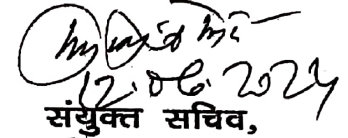 12.06.2024
संयुक्त सचिव,